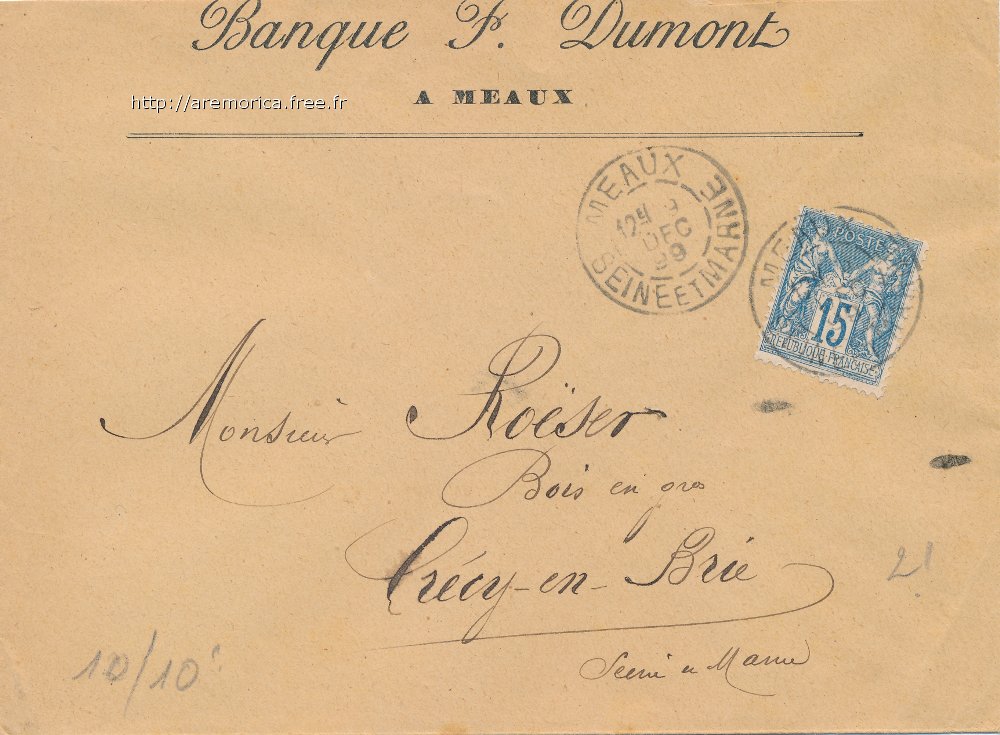 Banque F. Dumont
A MEAUX
http://aremorica.free.fr
MEAUX
12
DEC
99
SEINE ET MARNE
POSTE
15
REPUBLIQUE FRANÇAISE
Monsieur Roëser
Bois en gros
Crécy-en-Brie
Seine et Marne
21
10/10